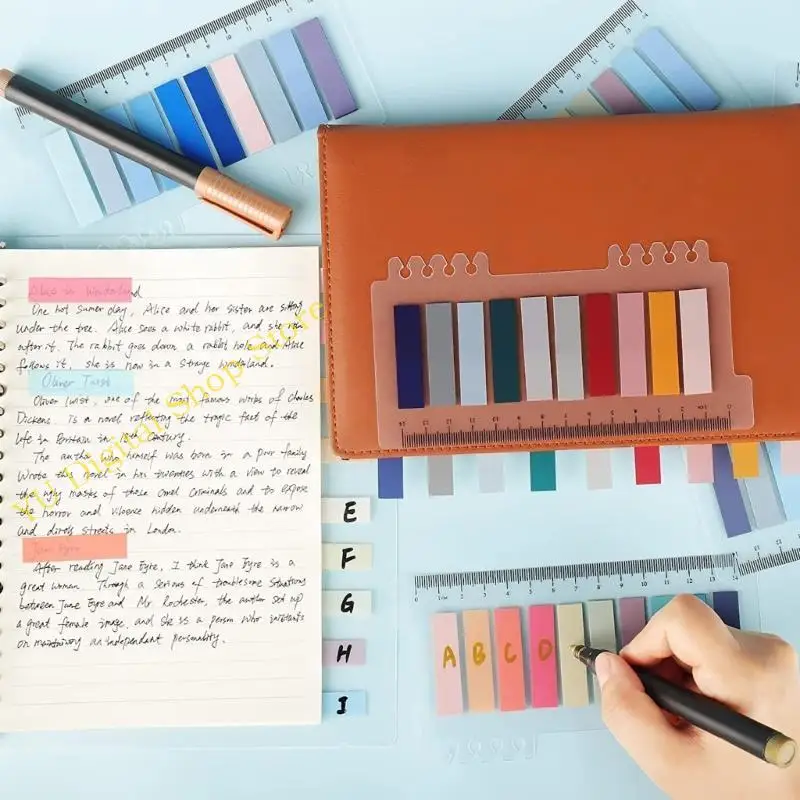 Alice in Wonderland
One hot sumer day, Alice and her sister are sitting
under the tree. Alice sees a white rabbit, and she runs
after it. The rabbit goes down a rabbit hole and Alice
follows it, she is now in a strange wondaland.
Oliver Twist
Oliver twist, one of the most famous works of Charles
Dickens, is a novel reflecting the tragic fact of the
life in Britain in 18th century.
The autho who himself was born in a poor family
Wrote this novel in his twenties with a view to reveal
the ugly masks of those cruel criminals and to expose
the horror and violence hidden underneath the narrow
and streets in London.
Jane Eyre
After reading Jane Eyre, I think Jane Eyre is a
great woman. Through a serious of troublesome situations
between Jane Eyre and Mr Rochester, the author set up
a great female image, and she is a person who insistants
on maintaining an independant personality.
E
F
G
H
I
A B C D
YU Digital Shop Store